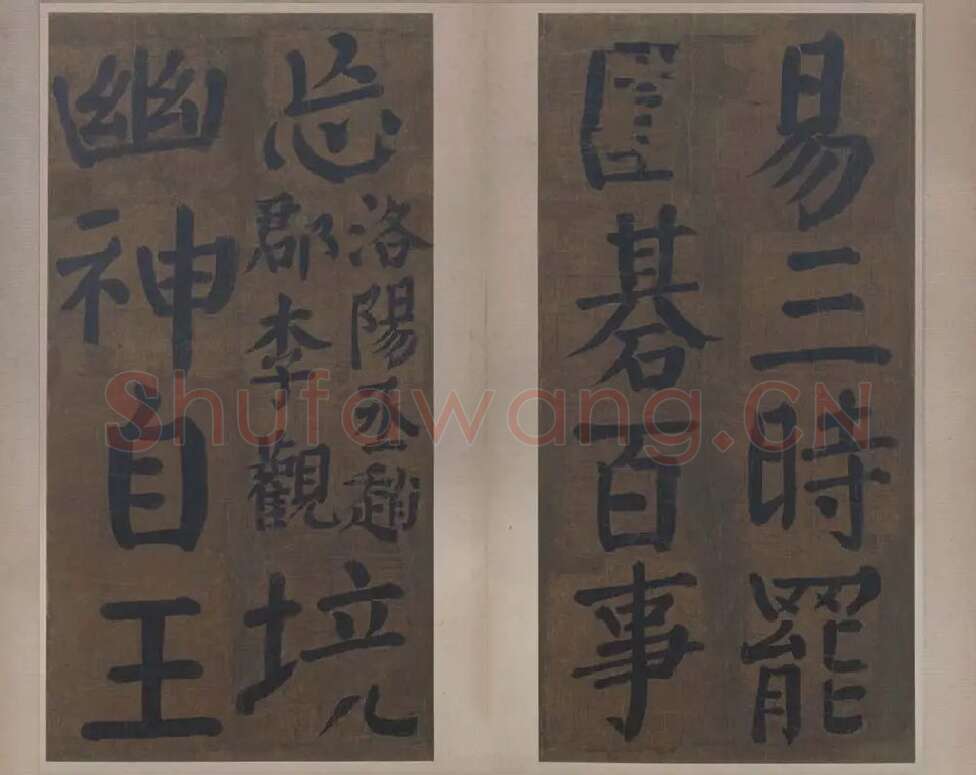 易三時罷
碁百事
忘
洛陽丞趙
郡李觀
境
幽神自王
Shufawang.CN